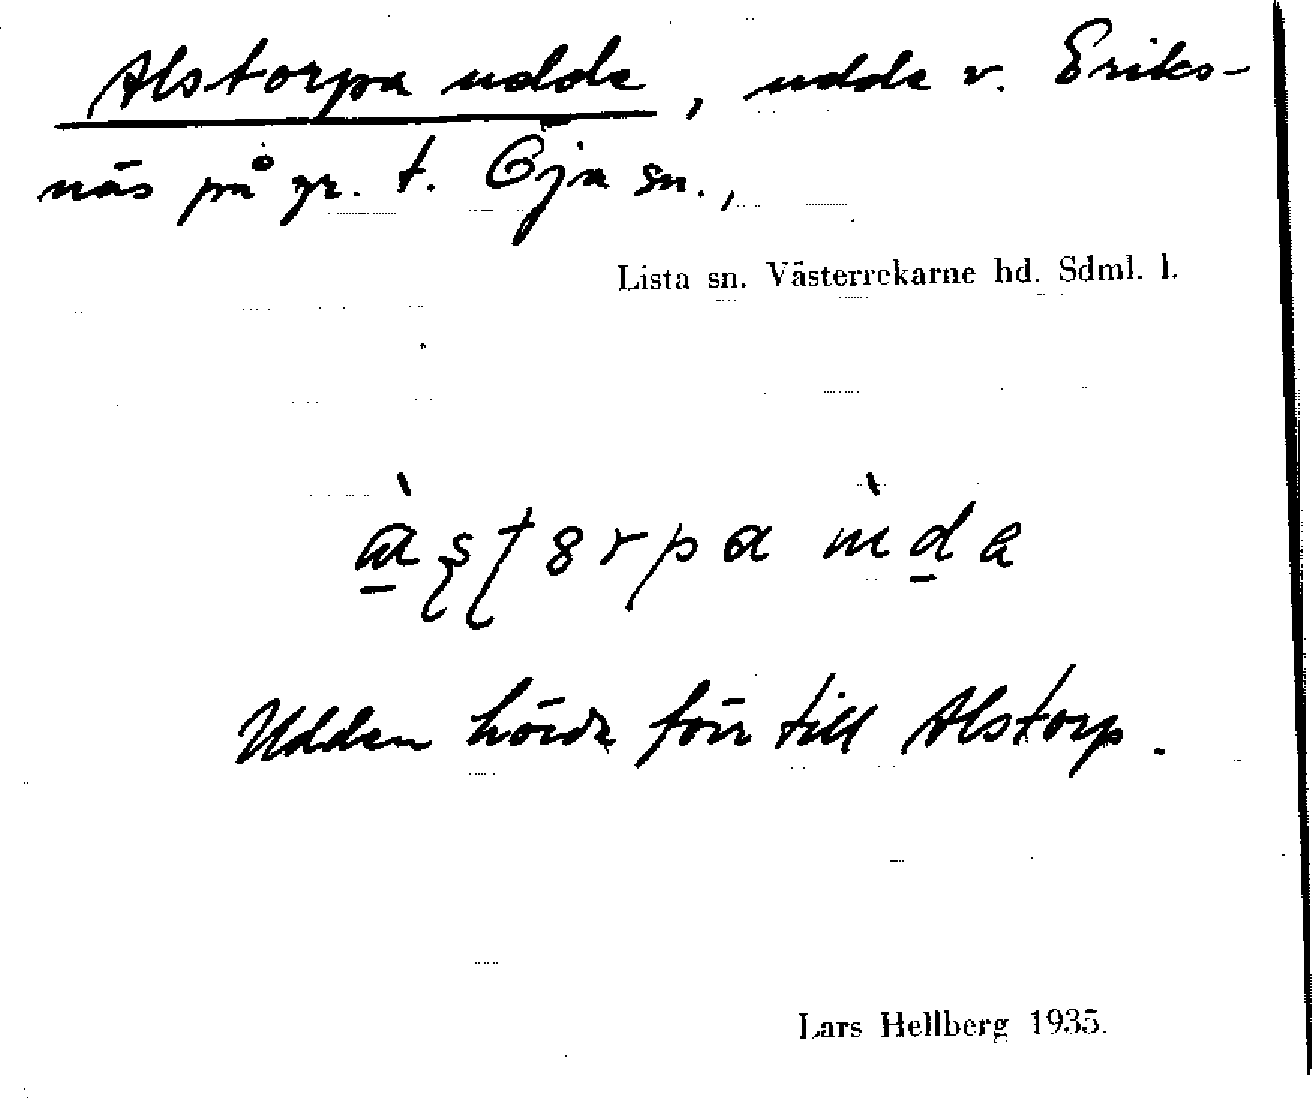 Alstorpa udde, udde v. Eriks-
näs på gr. t. Öja sn.,
Lista sn. Västerrekarne hd. Sdml. l.
Udden hörde förr till Alstorp.
Lars Hellberg 1935.